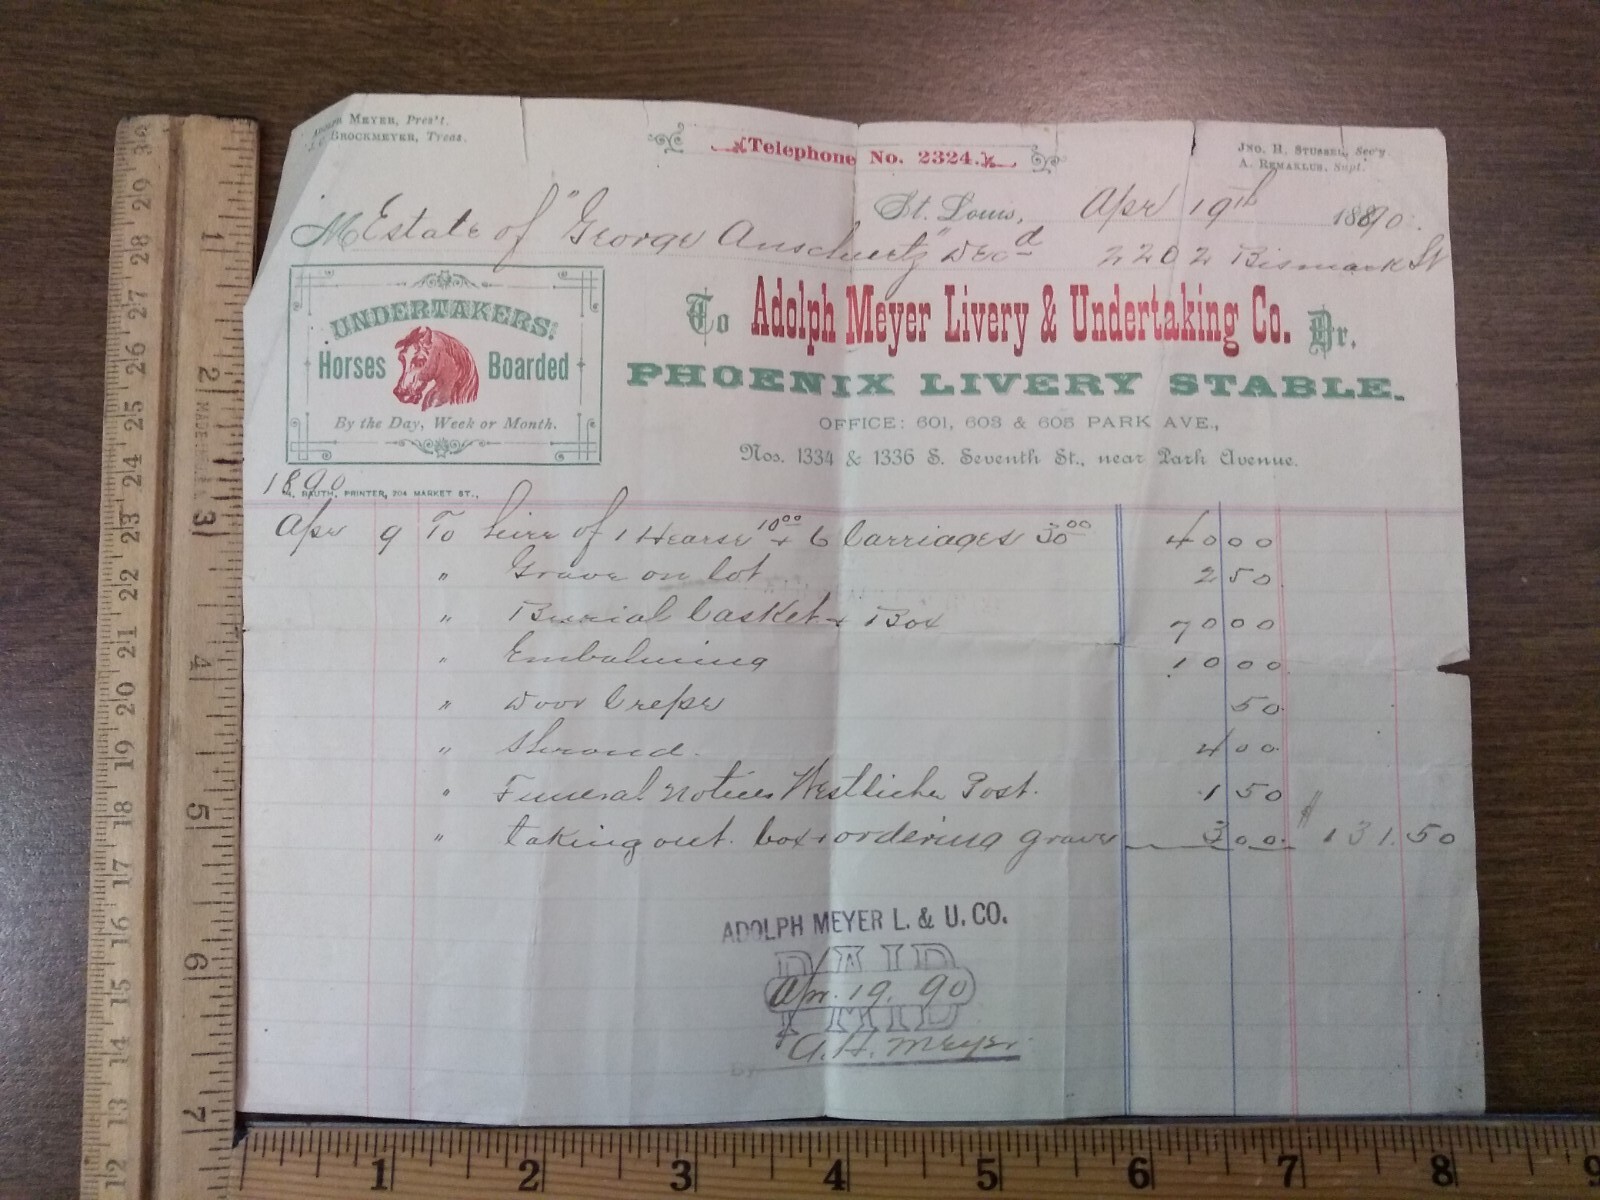 Adolph Meyer, Pres't.
Brockmeyer, Treas.
Telephone No. 2324.
Jno. H. Stussel, Sec'y
A. Remaklus, Supt.
St. Louis, Apr 19th 1890
M Estate of "George Anschuetz" Decd 2202 Bismark St
UNDERTAKERS!
Horses Boarded
By the Day, Week or Month.
To Adolph Meyer Livery & Undertaking Co. Dr.
PHOENIX LIVERY STABLE.
OFFICE: 601, 603 & 605 PARK AVE.,
Nos. 1334 & 1336 S. Seventh St., near Park Avenue.
1890
PRINTER, 204 MARKET ST.,
Apr 9 To hire of 1 Hearse 10 00 + 6 Carriages 30 00 40 00
" Grave on lot 2 50
" Burial Casket + Box 70 00
" Embalming 10 00
" Door Crepe 50
" Shroud. 4 00
" Funeral notices Westliche Post. 1 50
" taking out box + ordering grave 3 00 $131.50
ADOLPH MEYER L. & U. CO.
PAID
Apr. 19. 90
PAID
By A. H. Meyer
MADE
30
29
28
27
26
25
24
23
22
21
20
19
18
17
16
15
14
13
12
1
2
3
4
5
6
7
1 2 3 4 5 6 7 8 9